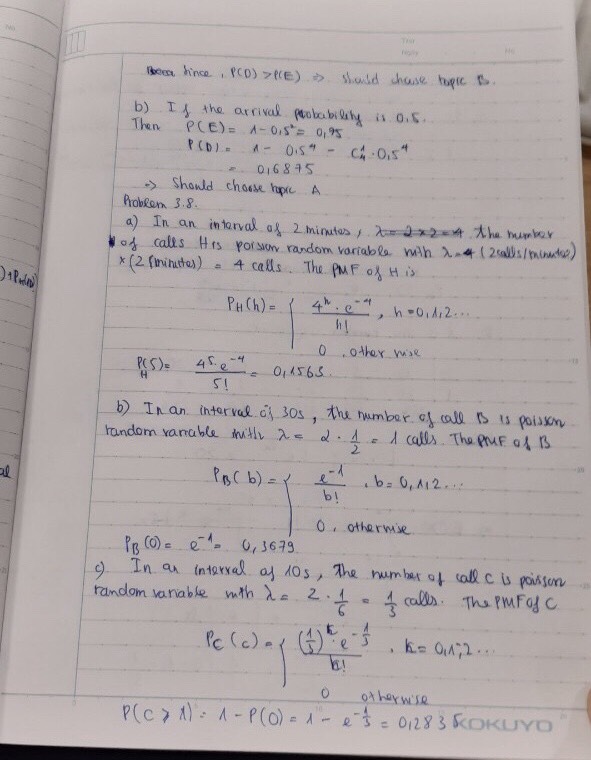 Since, P(D) > P(E) => should choose topic B.
b) If the arrival probability is 0,5.
Then P(E) = 1 - 0,5² = 0,75
P(D) = 1 - 0,5⁴ - C¹₄ · 0,5⁴
= 0,6875
=> Should choose topic A
Problem 3.8.
a) In an interval of 2 minutes, λ = 2 × 2 = 4 the number
of calls H is poisson random variable with λ = 4 (2 calls/minutes)
× (2 minutes) = 4 calls. The PMF of H is
P_H(h) = { 4^h · e^-4 / h! , h = 0,1,2...
0 , otherwise
P_H(5) = 4^5 · e^-4 / 5! = 0,1563
b) In an interval of 30s, the number of call B is poisson
random variable with λ = 2 · 1/2 = 1 calls. The PMF of B
P_B(b) = { e^-1 / b! , b = 0,1,2...
0 , otherwise
P_B(0) = e^-1 = 0,3679
c) In an interval of 10s, the number of call C is poisson
random variable with λ = 2 · 1/6 = 1/3 calls. The PMF of C
P_C(c) = { (1/3)^k · e^-1/3 / k! , k = 0,1,2...
0 otherwise
P(C ⩾ 1) = 1 - P(0) = 1 - e^-1/3 = 0,2835
KOKUYO